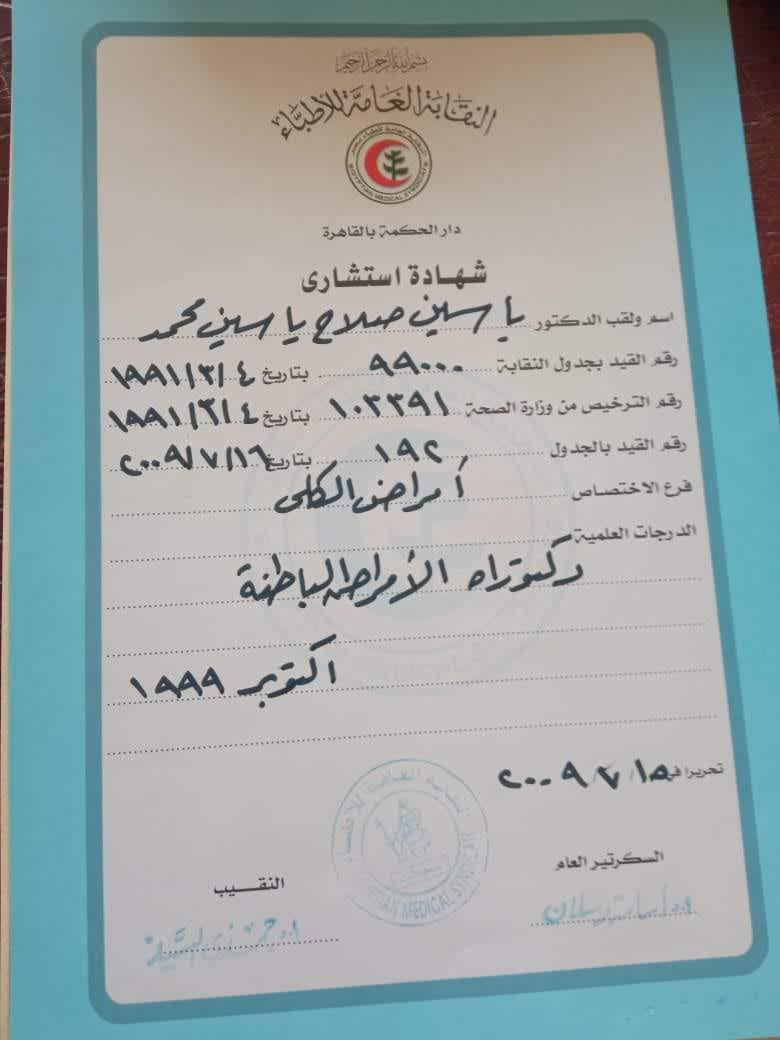 بسم الله الرحمن الرحيم
النقابة العامة للأطباء
النقابة العامة لأطباء مصر
EGYPTIAN MEDICAL SYNDICATE
دار الحكمة بالقاهرة
شهادة استشارى
اسم ولقب الدكتور ياسين صلاح ياسين محمد
رقم القيد بجدول النقابة ٩٩٠٠٠ بتاريخ ١٩٩١/٣/٤
رقم الترخيص من وزارة الصحة ١٠٣٣٩١ بتاريخ ١٩٩١/٣/٤
رقم القيد بالجدول ١٩٢ بتاريخ ٢٠٠٩/٧/١٦
فرع الاختصاص أمراض الكلى
الدرجات العلمية
دكتوراه الأمراض الباطنة
اكتوبر ١٩٩٩
تحريرا في ٢٠٠٩/٧/١٥
السكرتير العام
النقيب
النقابة العامة للأطباء
EGYPTIAN MEDICAL SYNDICATE
أ.د حمدى السيد